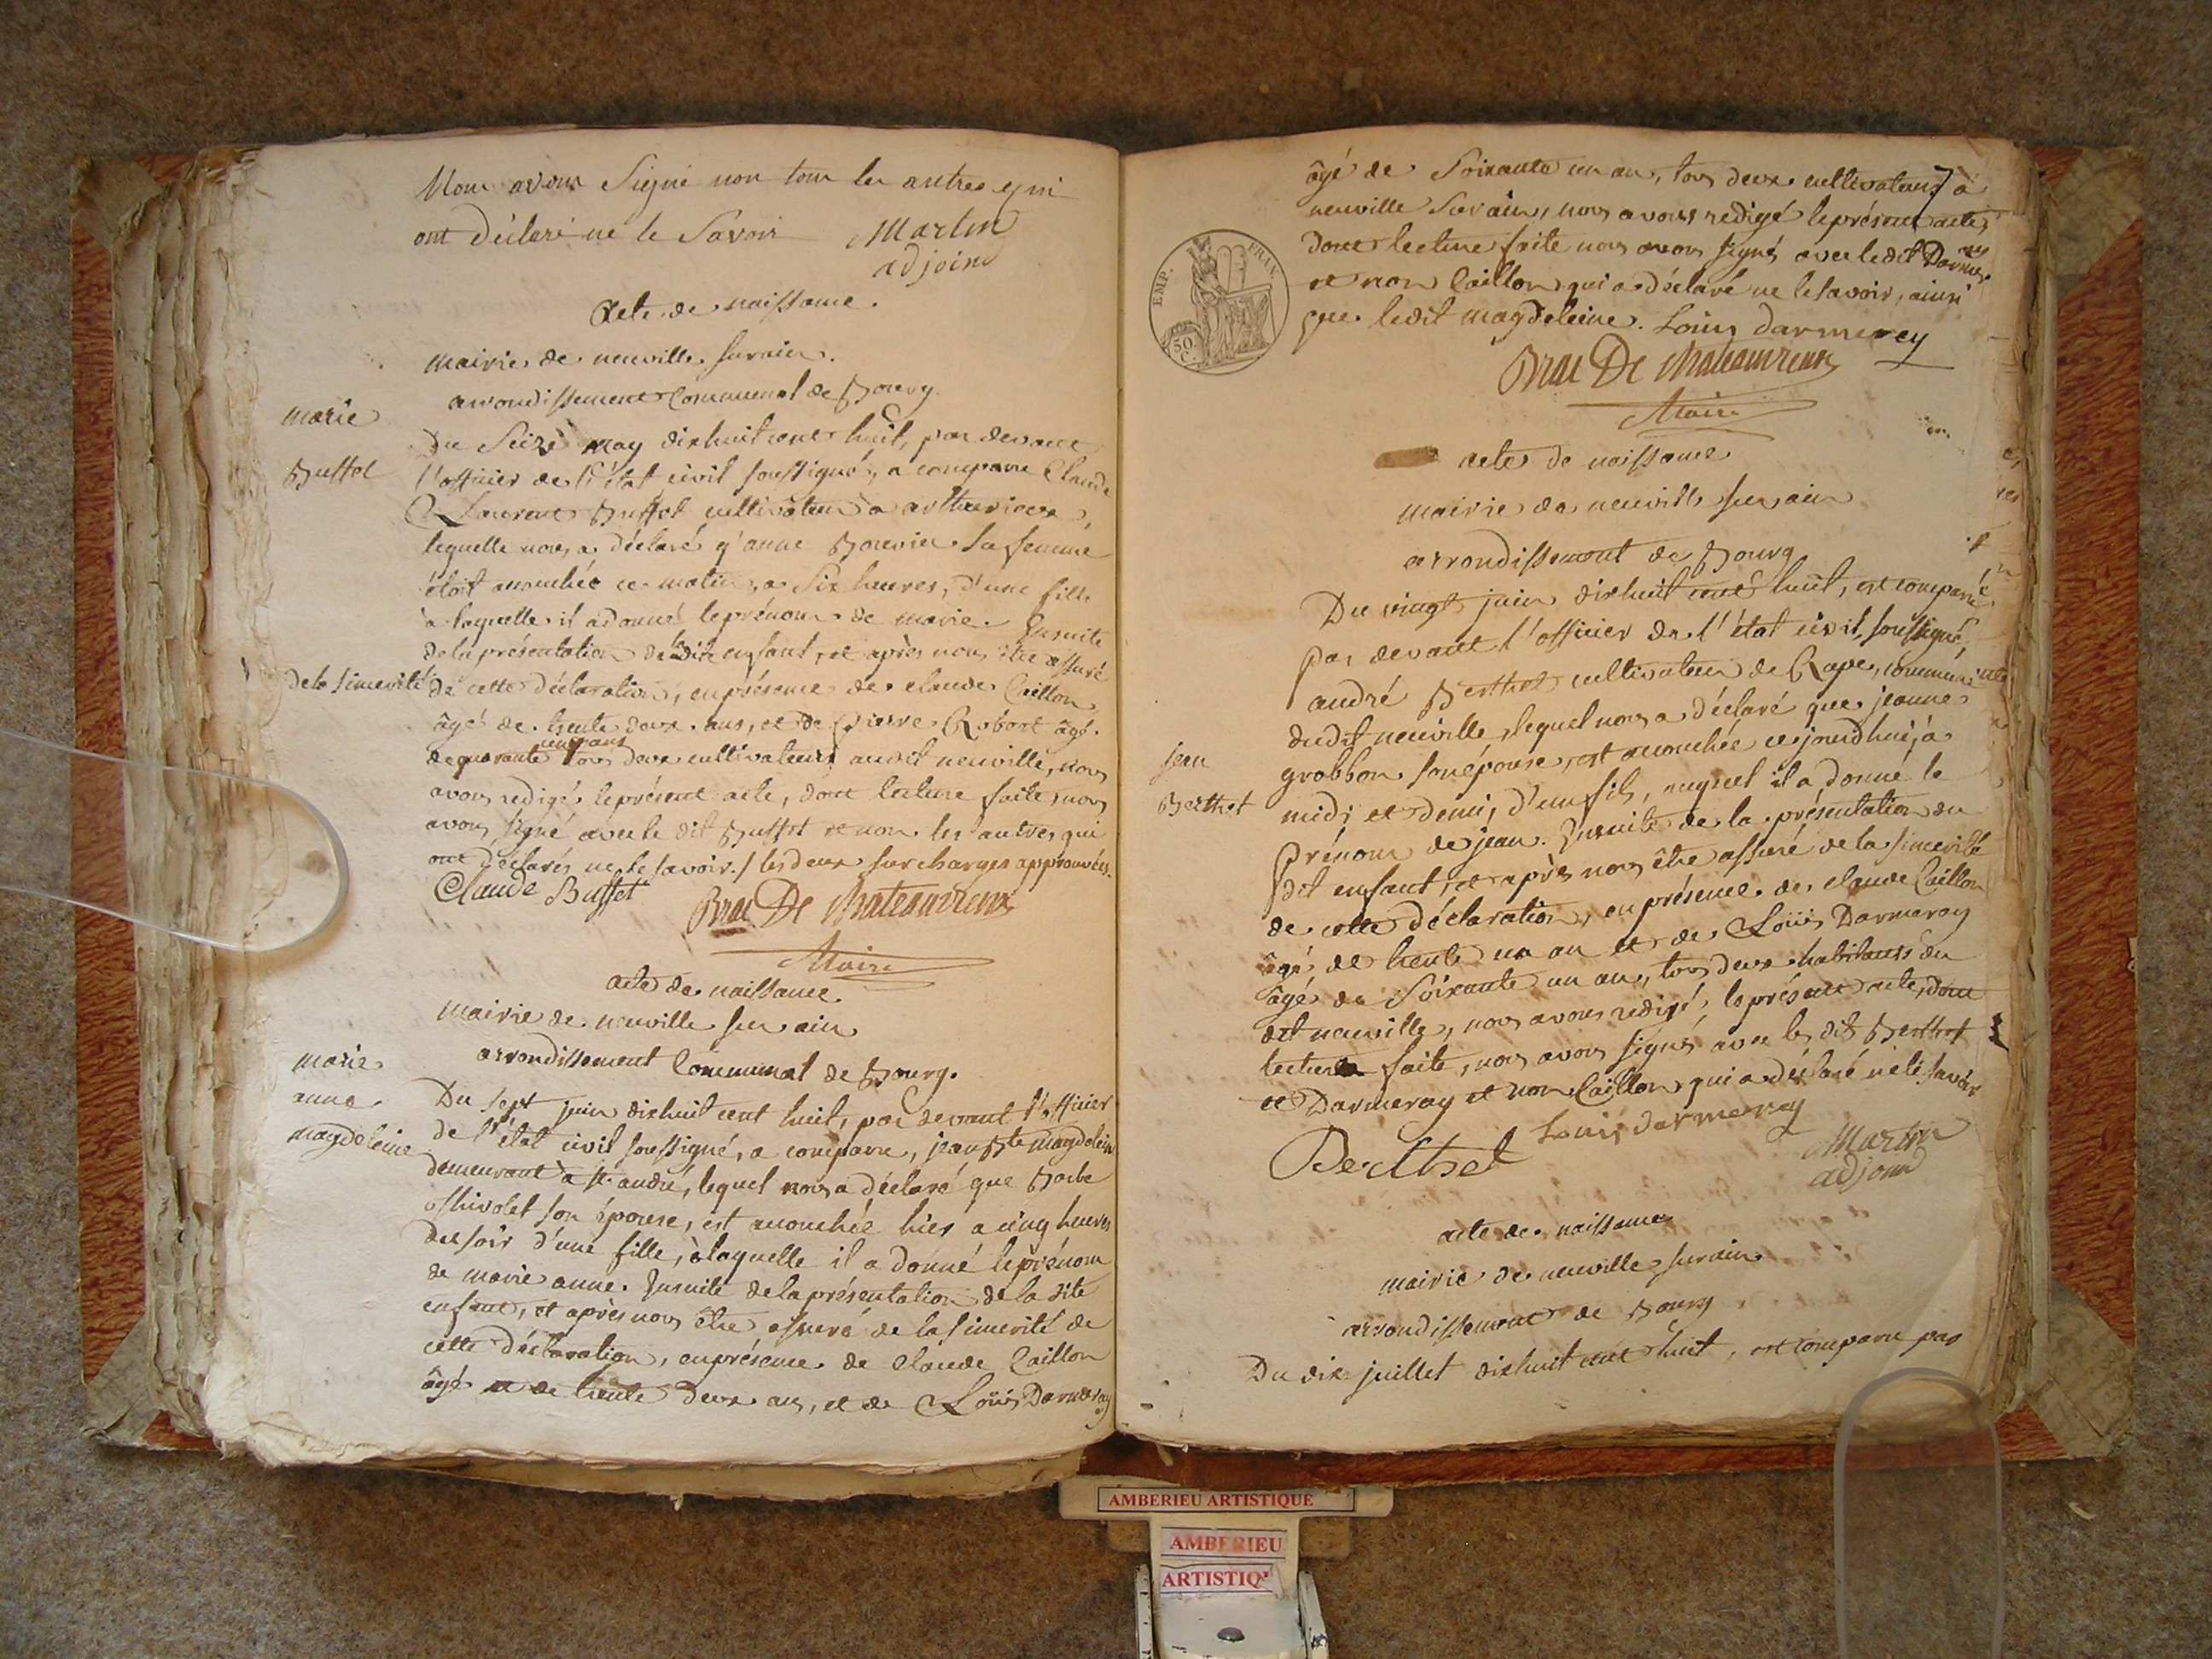 Nous avons Signé non tous les autres qui
ont déclaré ne le Savoir Martin
adjoint
Acte de naissance.
mairie de neuville sur ain.
arrondissement Communal de Bourg.
marie
Buffet
Du Seize may dixhuit cent huit, par devant
l'officier de l'état civil soussigné, a comparu Claude
Laurent Buffet cultivateur a
lequelle nous a déclaré q'anne Bouvier sa femme
étoit accouchée ce matin, a Six heures, d'une fille
à laquelle il a donné le prénom de marie. Ensuite
de la présentation de ladite enfant, et après nous être assuré
de la sincerité de cette déclaration, en présence de claude Caillon
âgé de trente deux ans, et de Pierre Robert âgé
de quarante cinq ans tous deux cultivateurs audit neuville, nous
avons redigé le présent acte, dont lecture faite, nous
avons signé avec le dit Buffet et non les autres qui
ont déclarés ne le savoir. / les deux surcharges approuvées.
Claude Buffet
Brac De Chateauvieux
Maire
acte de naissance.
mairie de neuville sur ain
arrondissement Communal de Bourg.
marie
anne
magdeleine
Du sept juin dixhuit cent huit, par devant l'officier
de l'état civil soussigné, a comparu, jean Bte magdeleine
demeurant à st. andré, lequel nous a déclaré que Barbe
son épouse, est accouchée hier a cinq heures
du soir d'une fille, à laquelle il a donné le prénom
de marie anne. Ensuite de la présentation de la dite
enfant, et après nous être assuré de la sincerité de
cette déclaration, en présence de claude Caillon
âgé de trente deux ans, et de Loüis Darmeray
âgé de Soixante un an, tous deux cultivateurs à
neuville sur ain, nous avons redigé le présent acte,
dont lecture faite nous avons signés avec ledit Darmeray
et non Caillon qui a déclaré ne le savoir, ainsi
que ledit magdeleine. Louis darmerey
EMP. FRAN.
50 C.
Brac De Chateauvieux
Maire
acte de naissance
mairie de neuville sur ain
arrondissement de Bourg
Du vingt juin dixhuit cent huit, est comparu
par devant l'officier de l'état civil, soussigné,
andré Berthet cultivateur de Rape, commune
dudit neuville, lequel nous a déclaré que jeanne
jean
Berthet
grobbon son épouse, est accouchée ce jourdhui, à
midi et demi, d'un fils, auquel il a donné le
prénom de jean. Ensuite de la présentation du
dit enfant, et après nous être assuré de la sincerité
de cette déclaration, en présence de claude Caillon
âgé de trente un an et de Loüis Darmeray
âgé de Soixante un an, tous deux habitants du
dit neuville, nous avons redigé, le présent acte, dont
lecture faite, nous avons signés avec les dits Berthet
et Darmeray et non Caillon qui a déclaré ne le savoir
Berthet Louis darmeray
Martin
adjoint
acte de naissance
mairie de neuville sur ain
arrondissement de Bourg
Du dix juillet dixhuit cent huit, est comparu par
AMBERIEU ARTISTIQUE
AMBERIEU
ARTISTIQ